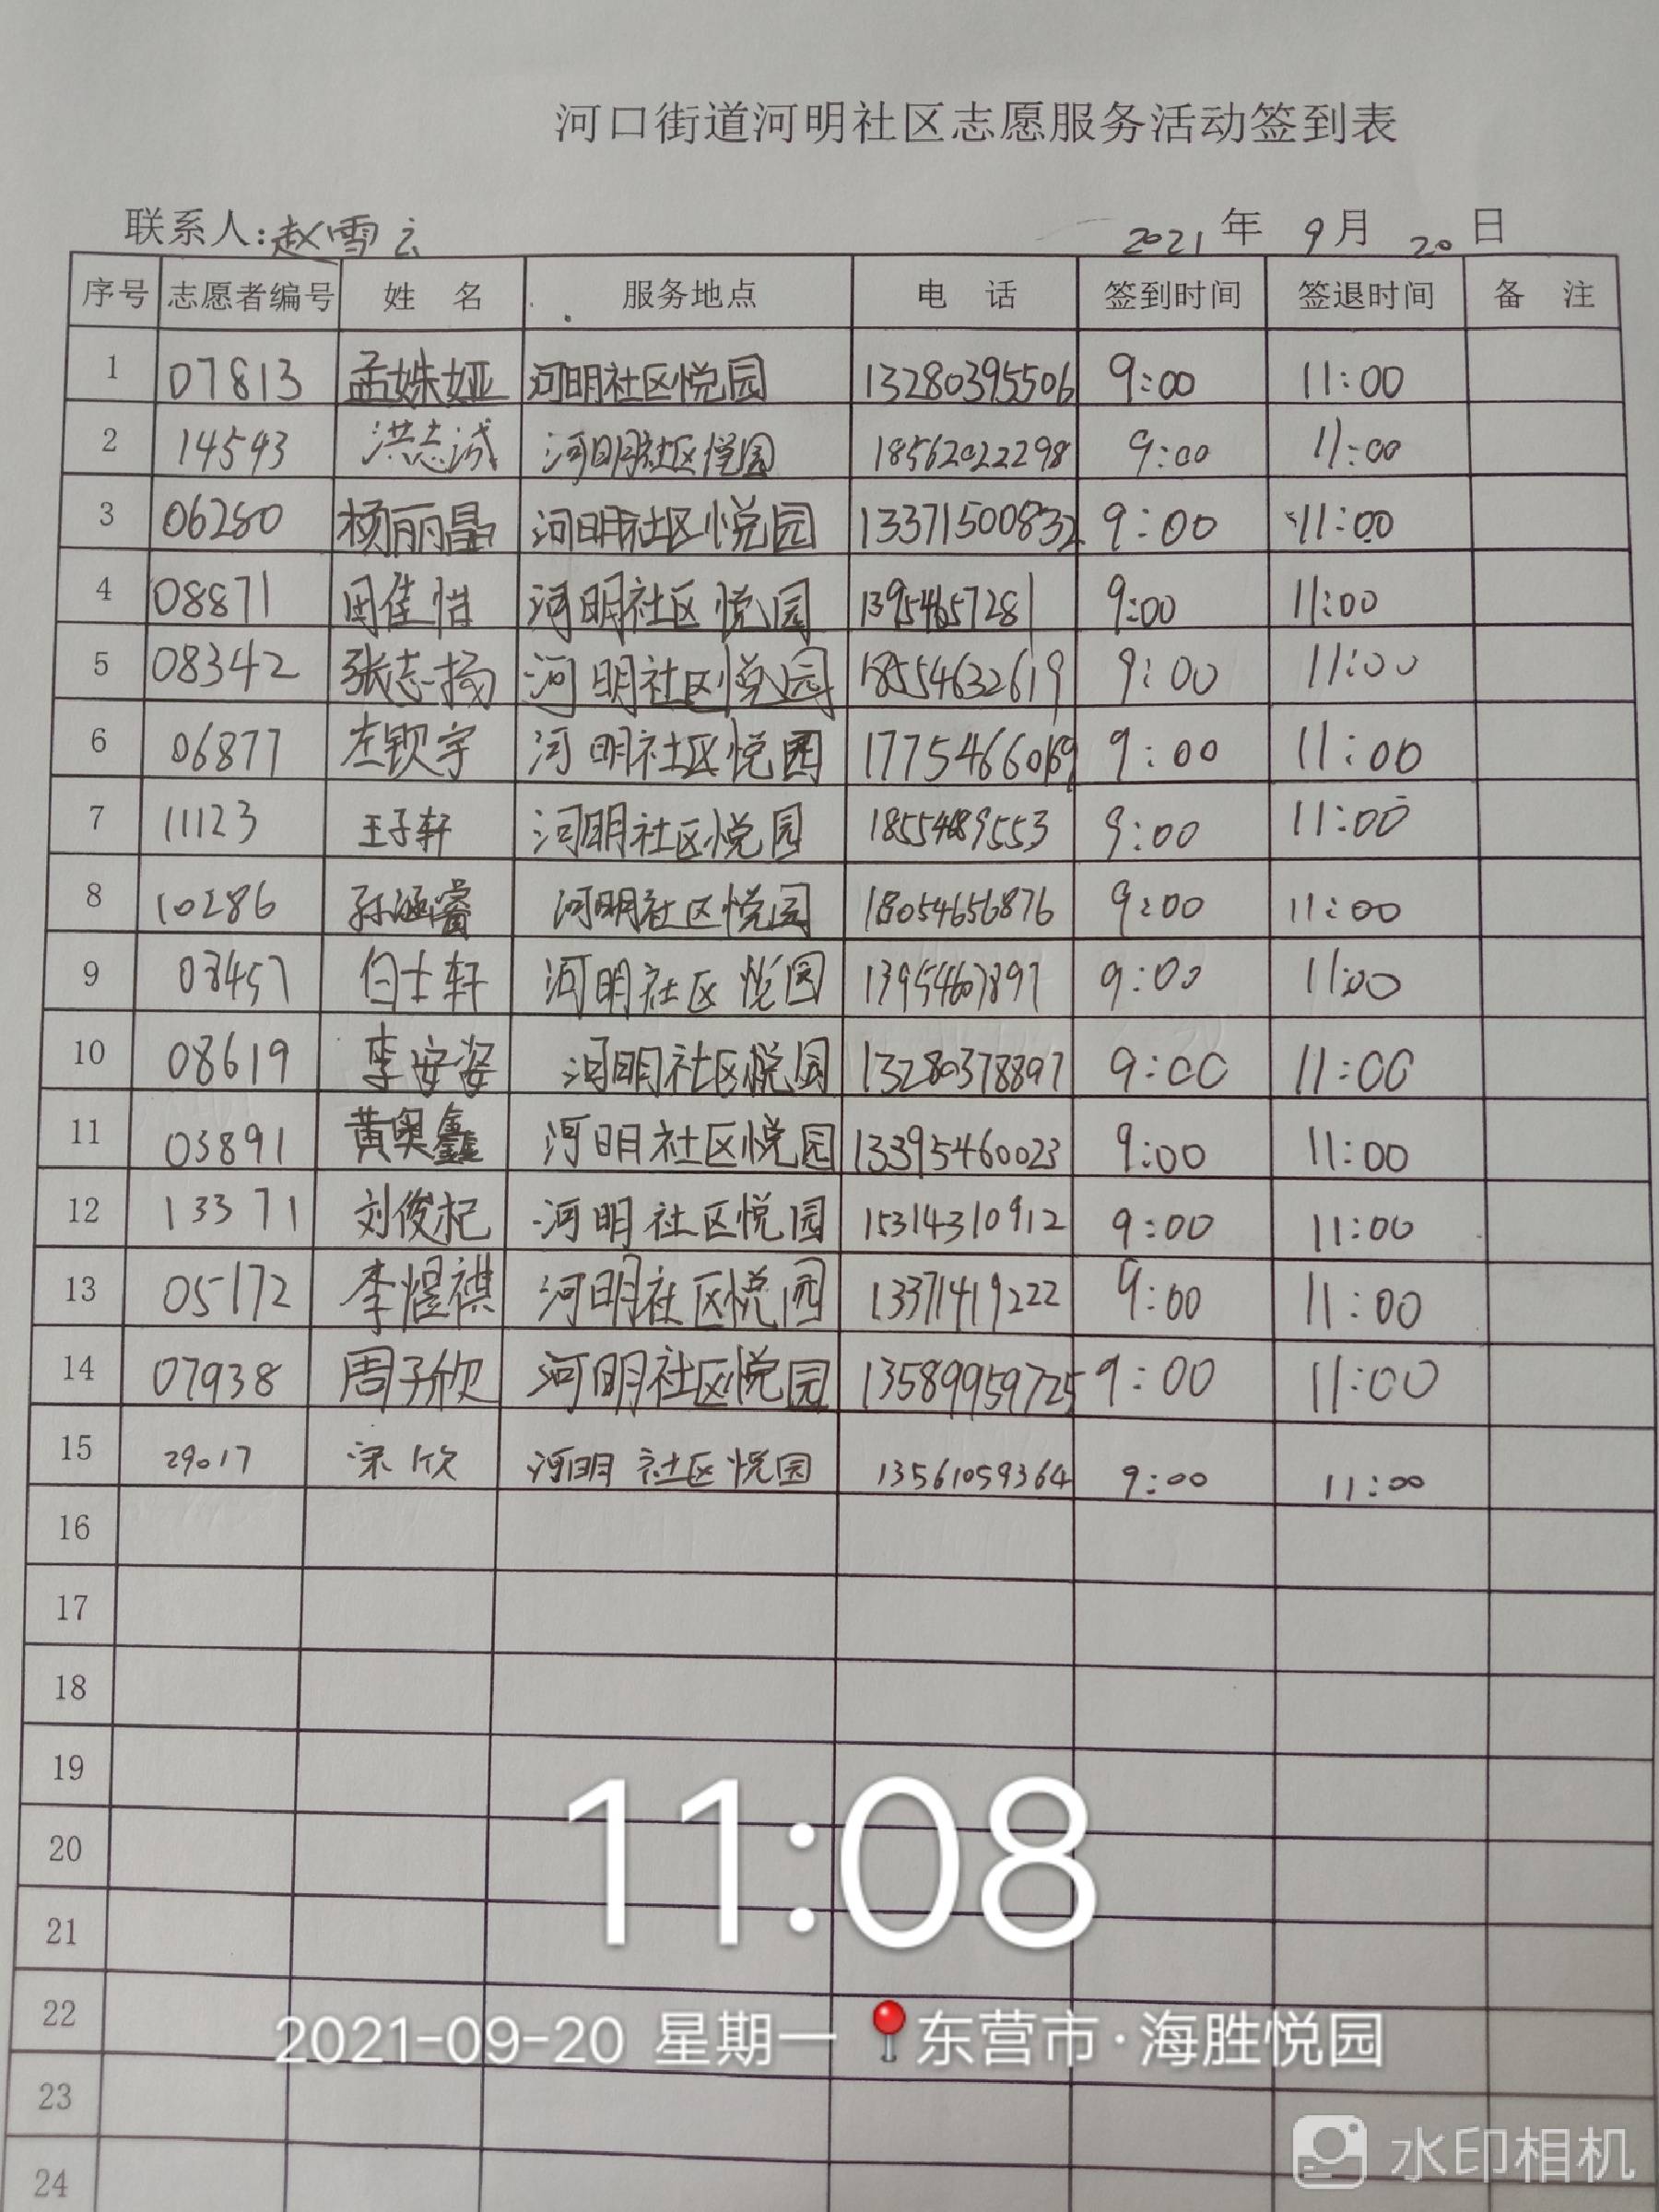 河口街道河明社区志愿服务活动签到表
联系人:赵雪云 2021年 9月 20日
序号 志愿者编号 姓 名 服务地点 电 话 签到时间 签退时间 备 注
1 07813 孟姝娅 河明社区悦园 13280395506 9:00 11:00
2 14543 洪志诚 河明社区悦园 18562022298 9:00 11:00
3 06280 杨丽晶 河明社区悦园 13371500832 9:00 11:00
4 08871 周佳惜 河明社区悦园 13954657281 9:00 11:00
5 08342 张志扬 河明社区悦园 18554632619 9:00 11:00
6 06877 左钦宇 河明社区悦园 9:00 11:00
7 11123 王子轩 河明社区悦园 9:00 11:00
8 10286 孙涵睿 河明社区悦园 18054656876 9:00 11:00
9 08457 白士轩 河明社区悦园 13954607897 9:00 11:00
10 08619 李安姿 河明社区悦园 13280378897 9:00 11:00
11 03891 黄奥鑫 河明社区悦园 13395460023 9:00 11:00
12 13371 刘俊杞 河明社区悦园 15314310912 9:00 11:00
13 05172 李煜祺 河明社区悦园 13371419222 9:00 11:00
14 07938 周子欣 河明社区悦园 13589959725 9:00 11:00
15 29017 宋欣 河明社区悦园 13561059364 9:00 11:00
16
17
18
19
20
21
22
23
24
11:08
2021-09-20 星期一 东营市·海胜悦园
水印相机